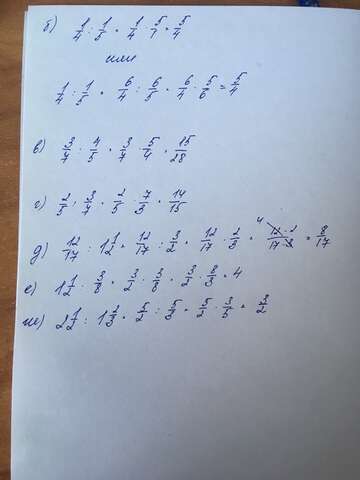 б) 1/4 : 1/5 = 1/4 · 5/1 = 5/4
или
1/4 : 1/5 = 6/4 : 6/5 = 6/4 · 5/6 = 5/4
в) 3/7 : 4/5 = 3/7 · 5/4 = 15/28
г) 2/5 : 3/7 = 2/5 · 7/3 = 14/15
д) 12/17 : 1 1/2 = 12/17 : 3/2 = 12/17 · 2/3 = 4 12·2/17·3 = 8/17
е) 1 1/2 : 3/8 = 3/2 : 3/8 = 3/2 · 8/3 = 4
ж) 2 1/2 : 1 2/3 = 5/2 : 5/3 = 5/2 · 3/5 = 3/2